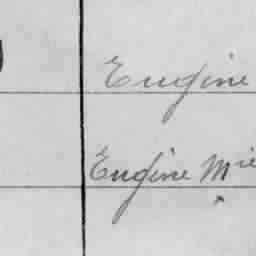 Eugine
Eugine Mie